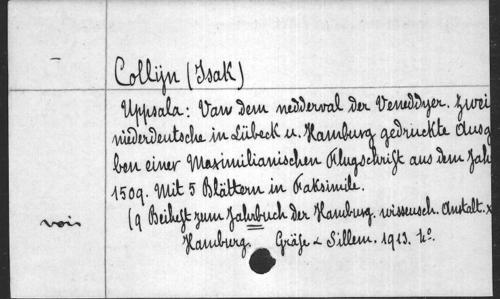 Collijn (Isak)
Uppsala: Van dem nedderval der Veneddyer. Zwei
niederdeutsche in Lübeck u. Hamburg gedruckte Ausg
ben einer Maximilianischen Flugschrift aus dem Jah
1509. Mit 5 Blättern in Faksimile.
(9 Beiheft zum Jahrbuch der Hamburg. wissensch. Anstalt. X
Hamburg. Gräfe & Sillem. 1913. 4°.
voir